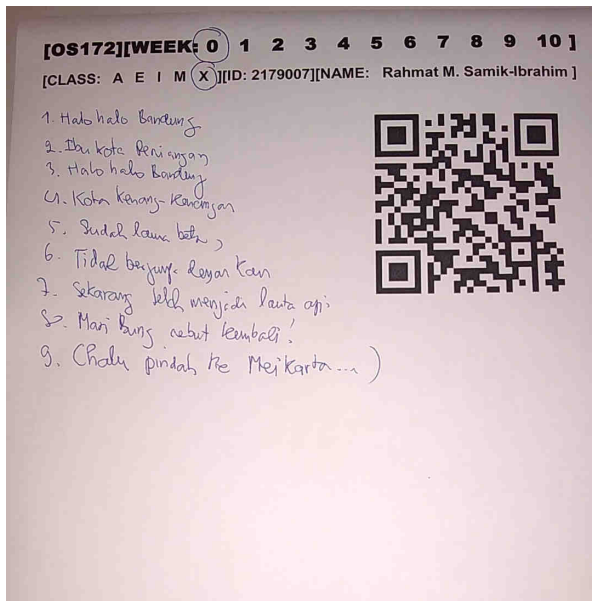 [OS172][WEEK: 0 1 2 3 4 5 6 7 8 9 10 ]
[CLASS: A E I M X ][ID: 2179007][NAME: Rahmat M. Samik-Ibrahim ]
1. Halo halo Bandung
2. Ibu kota Periangan
3. Halo halo Bandung
4. Kota Kenang-Kenangan
5. Sudah lama beta,
6. Tidak berjumpa dengan Kau
7. Sekarang telah menjadi lauta api
8. Mari Bung rebut kembali!
9. pindah ke Meikarta... )